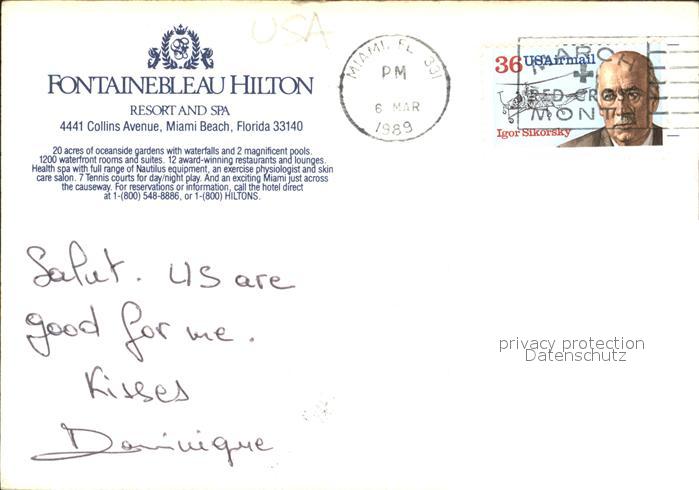 USA
FONTAINEBLEAU HILTON
RESORT AND SPA
4441 Collins Avenue, Miami Beach, Florida 33140
20 acres of oceanside gardens with waterfalls and 2 magnificent pools.
1200 waterfront rooms and suites. 12 award-winning restaurants and lounges.
Health spa with full range of Nautilus equipment, an exercise physiologist and skin
care salon. 7 Tennis courts for day/night play. And an exciting Miami just across
the causeway. For reservations or information, call the hotel direct
at 1-(800) 548-8886, or 1-(800) HILTONS.
MIAMI, FL 331
PM
6 MAR
1989
36 USAirmail
Igor Sikorsky
MARCH
RED CROSS
MONTH
Salut. US are
good for me.
Kisses
Dominique
privacy protection
Datenschutz